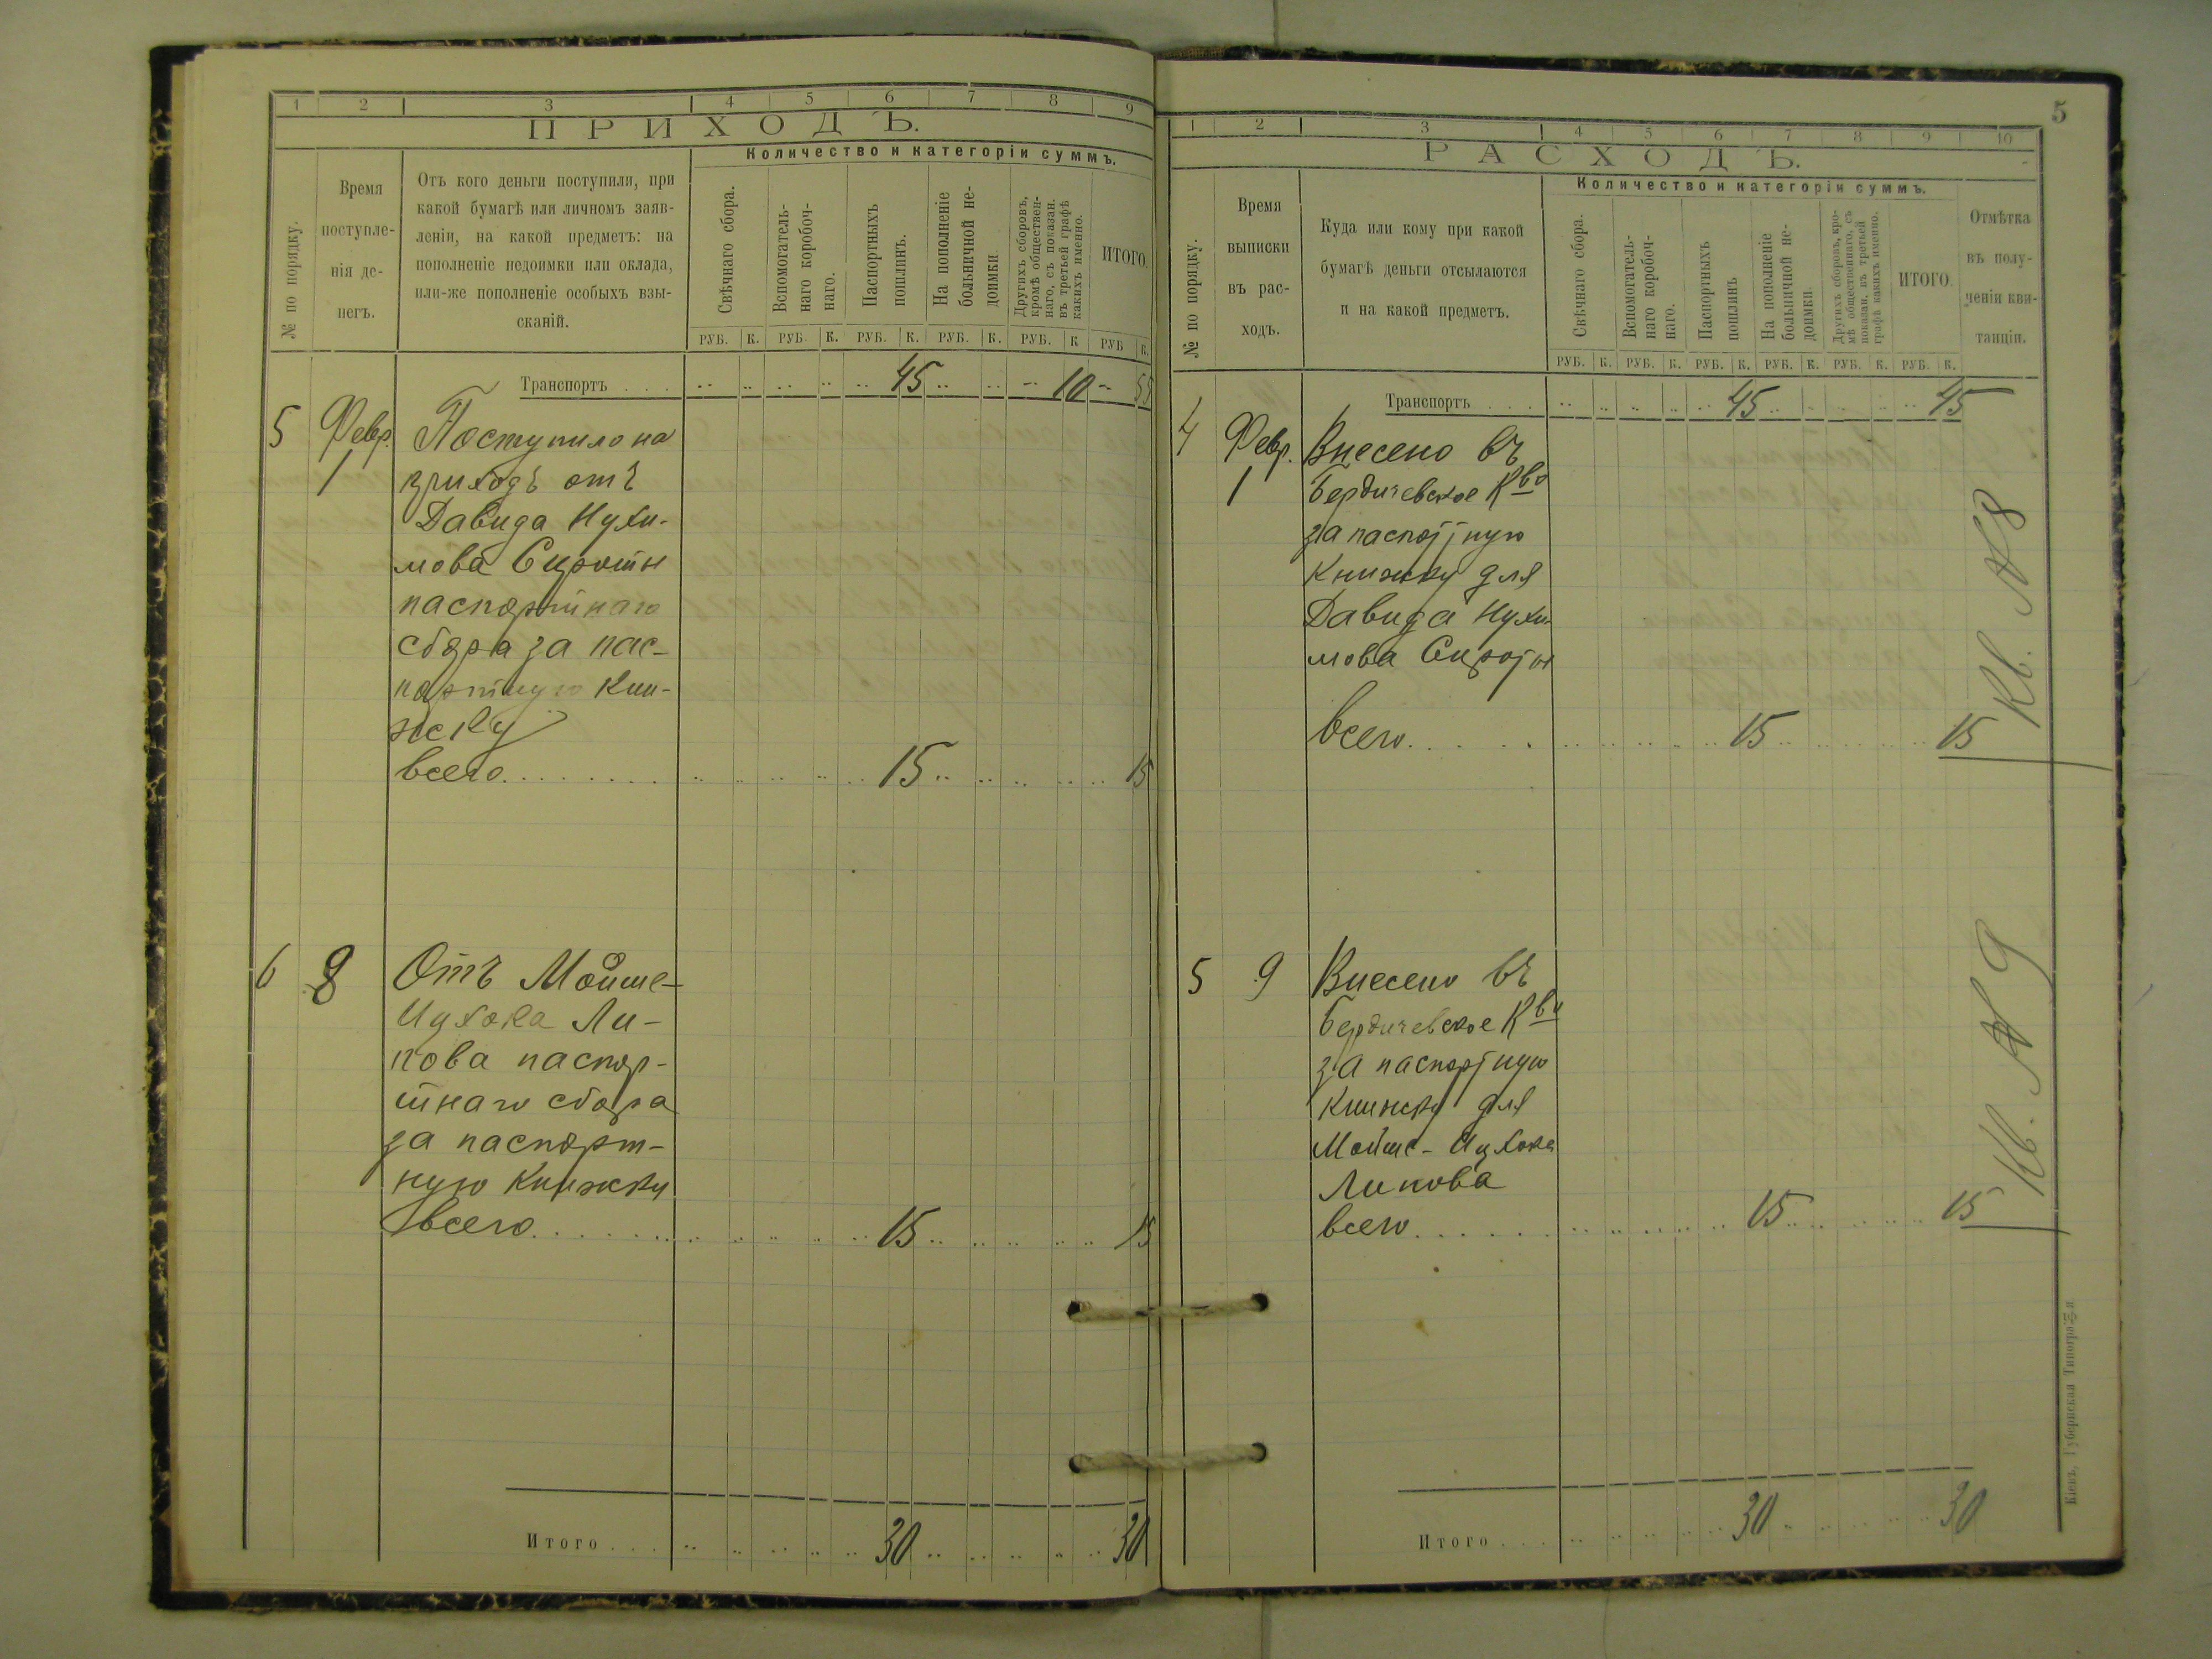 1 2 3 4 5 6 7 8 9
ПРИХОДЪ.
№ по порядку.
Время
поступле-
нія де-
негъ.
Отъ кого деньги поступили, при
какой бумагѣ или личномъ заяв-
леніи, на какой предметъ: на
пополненіе недоимки или оклада,
или-же пополненіе особыхъ взы-
сканій.
Количество и категоріи суммъ.
Свѣчнаго сбора.
Вспомогатель-
наго коробоч-
наго.
Паспортныхъ
пошлинъ.
На пополненіе
больничной не-
доимки
Другихъ сборовъ,
кромѣ обществен-
наго, съ показан.
въ третьей графѣ
какихъ именно.
ИТОГО.
РУБ. К. РУБ. К. РУБ. К. РУБ. К. РУБ. К РУБ К.
Транспортъ . . . 45 10 55
5 Февр. Поступило на
1 приходъ отъ
Давида Нухи-
мова Сироты
паспортнаго
сбора за пас-
портную кни-
жку
всего. . . . . . . . 15 15
6 8 Отъ Мойше-
Ицхока Ли-
пова паспор-
тнаго сбора
за паспорт-
ную книжку
всего. . . . . . . 15 15
Итого . . . 30 30
5
1 2 3 4 5 6 7 8 9 10
РАСХОДЪ.
№ по порядку.
Время
выписки
въ рас-
ходъ.
Куда или кому при какой
бумагѣ деньги отсылаются
и на какой предметъ.
Количество и категоріи суммъ.
Свѣчнаго сбора.
Вспомогатель-
наго коробоч-
наго.
Паспортныхъ
пошлинъ
На пополненіе
больничной не-
доимки.
Другихъ сборовъ, кро-
мѣ общественнаго, съ
показан. въ третьей
графѣ какихъ именно.
ИТОГО.
Отмѣтка
въ полу-
ченіи кви-
танціи.
РУБ. К. РУБ. К. РУБ. К. РУБ. К. РУБ. К. РУБ. К.
Транспортъ . . . 45 45
4 Февр. Внесено въ
1 Бердичевское Кво
за паспортную
книжку для
Давида Нухи-
мова Сироты
всего. . . . . 15 15
Кв. № 8
5 9 Внесено въ
Бердичевское Кво
за паспортную
книжку для
Мойше-Ицхока
Липова
всего. . . . . . 15 15
Кв. № 9
Итого . . . 30 30
Кіевъ, Губернская Типографія